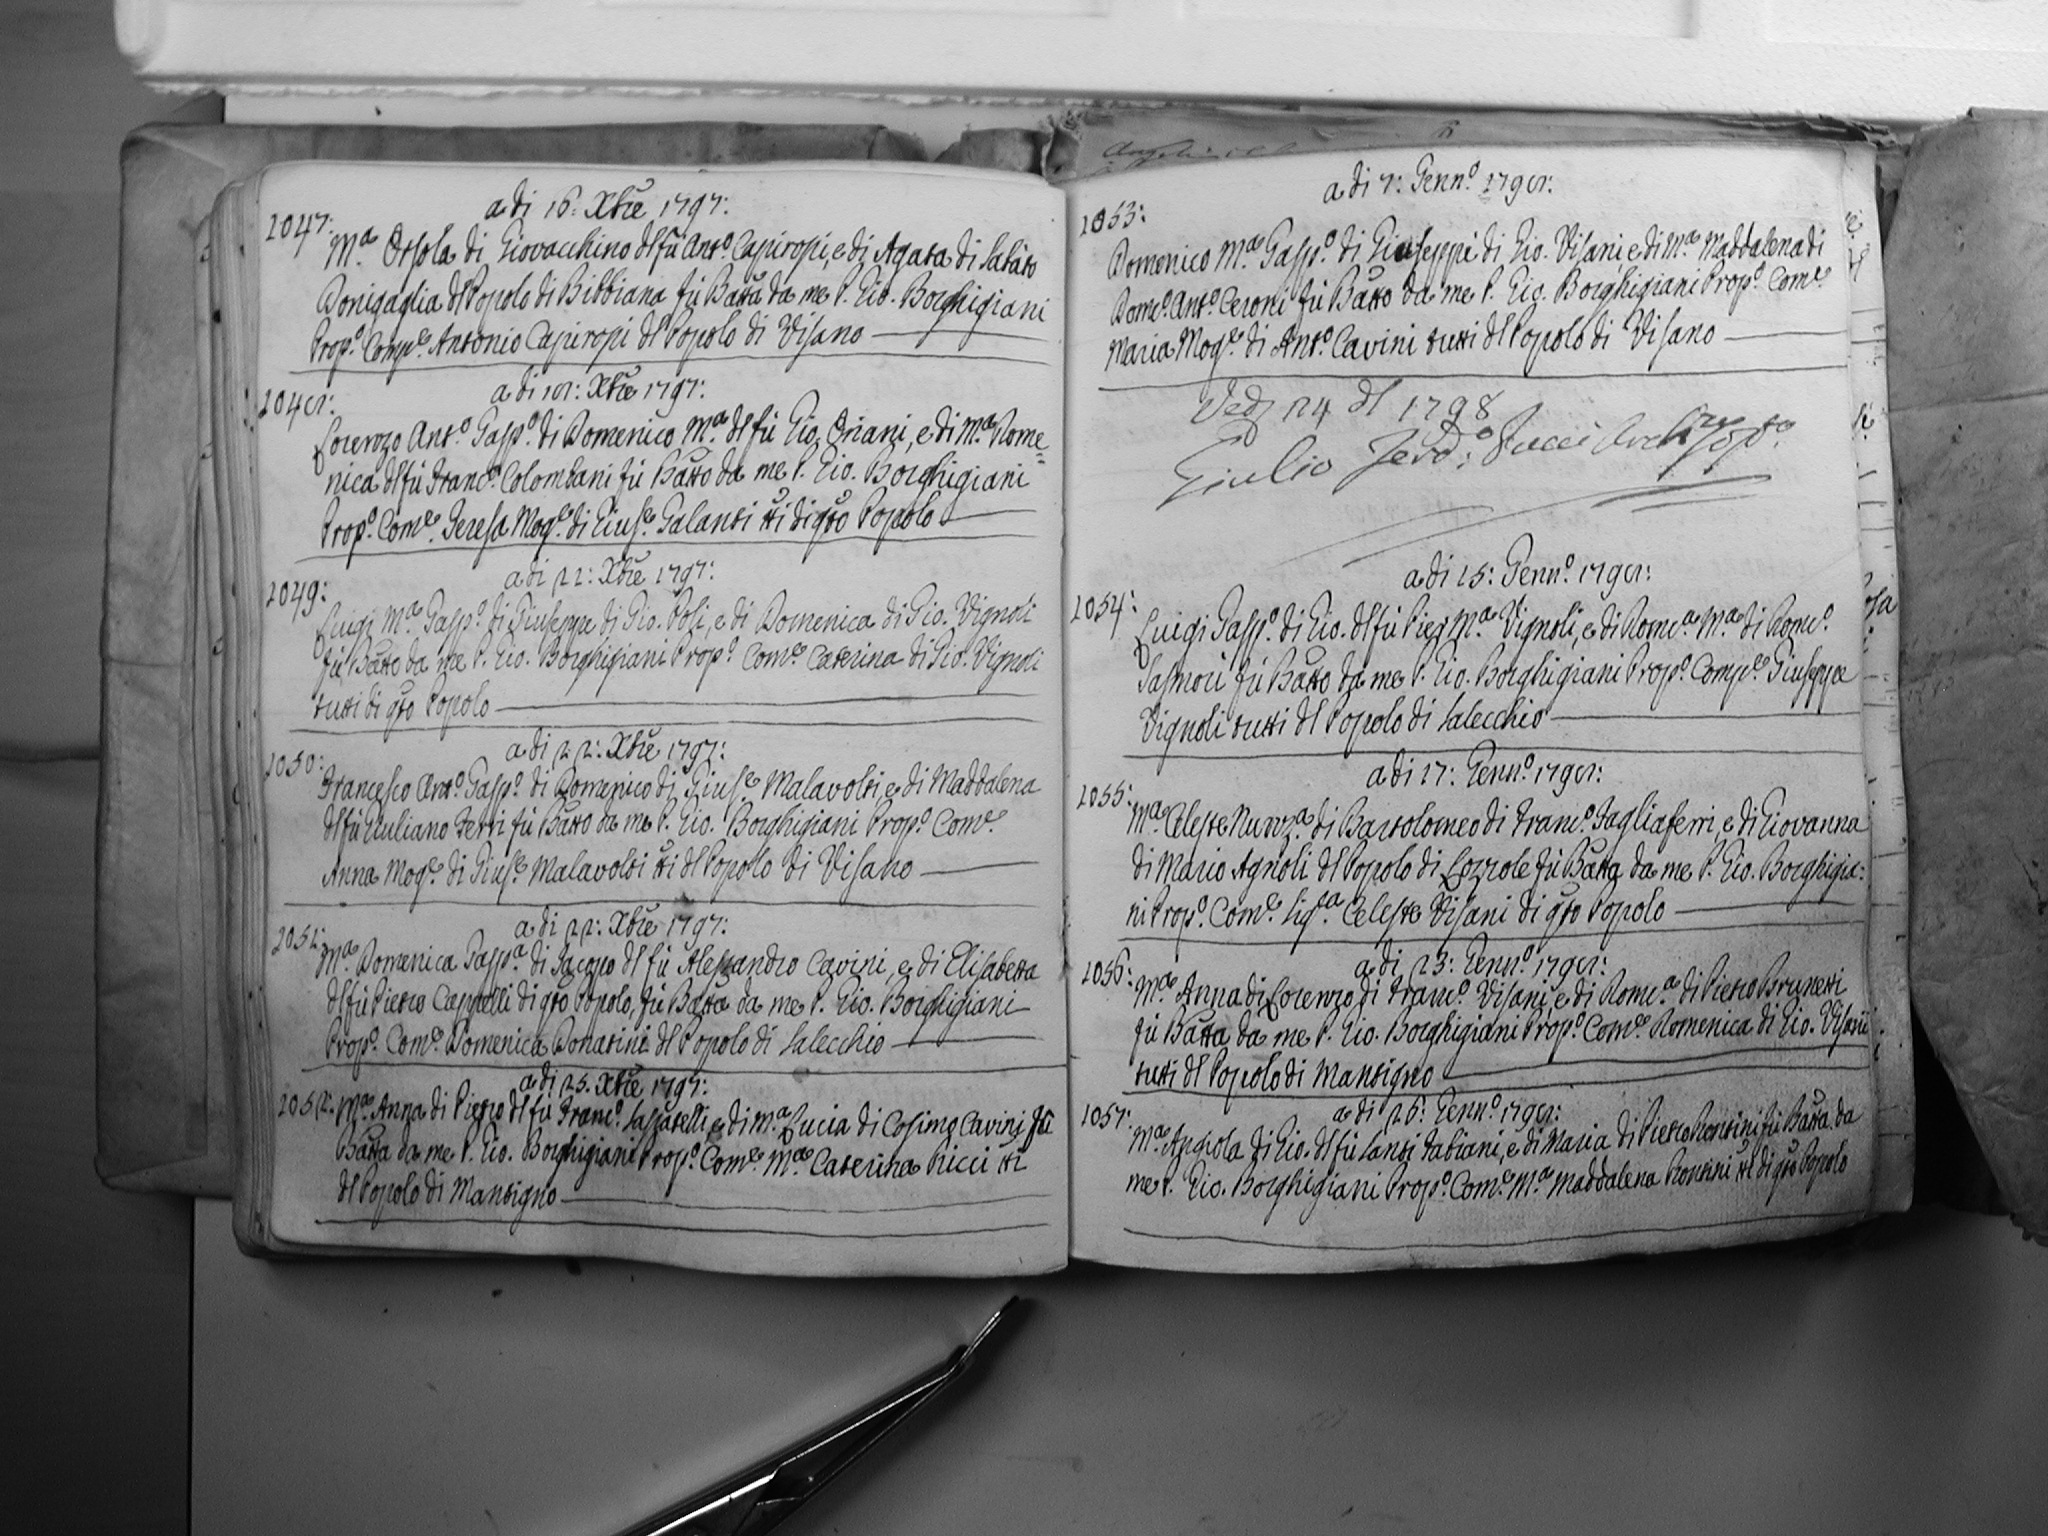 a di 16: Xbre 1797:
1047:
M.ª Orsola di Giovacchino dl fù Ant.º Capiropi, e di Agata di Sabato
Donigaglia dl Popolo di Bibbiana fù Batta da me P. Gio. Borghigiani
Prop.º Comp.e Antonio Capiropi dl Popolo di Visano
a di 18: Xbre 1797:
1048:
Lorenzo Ant.º Gasp.º di Domenico M.ª dl fù Gio. Oriani, e di M.ª Dome=
nica dl fù Franc.º Colombani fù Batto da me P. Gio. Borghigiani
Prop.º Com.e Teresa Mog.e di Gius.e Galanti tti di qto Popolo
a di 22: Xbre 1797:
1049:
Luigi M.ª Gasp.º di Giuseppe di Gio. Poli, e di Domenica di Gio. Vignoli
fù Batto da me P. Gio. Borghigiani Prop.º Com.e Caterina di Gio. Vignoli
tutti di qto Popolo
a di 22: Xbre 1797:
1050:
Francesco Ant.º Gasp.º di Domenico di Gius.e Malavolti e di Maddalena
dl fù Giuliano Ferri fù Batto da me P. Gio. Borghigiani Prop.º Com.e
Anna Mog.e di Gius.e Malavolti tti dl Popolo di Visano
a di 22: Xbre 1797:
1051:
M.ª Domenica Gasp.ª di Jacopo dl fù Alessandro Cavini, e di Elisabetta
dl fù Pietro Cappelli di qto Popolo, fù Batta da me P. Gio. Borghigiani
Prop.º Com.e Domenica Donatini dl Popolo di Salecchio
a di 25. Xbre 1797:
1052:
M.ª Anna di Pietro dl fù Franc.º Sassatelli, e di M.ª Lucia di Cosimo Cavini fù
Batta da me P. Gio. Borghigiani Prop.º Com.e M.ª Caterina Ricci tti
dl Popolo di Mantigno
a di 7: Genn.º 1798:
1053:
Domenico M.ª Gasp.º di Giuseppe di Gio. Visani e di M.ª Maddalena di
Dom.º Ant.º Ceroni fù Batto da me P. Gio. Borghigiani Prop.º Com.e
Maria Mog.e di Ant.º Cavini tutti dl Popolo di Visano
24 dl 1798
Giulio
a di 15: Genn.º 1798:
1054:
Luigi Gasp.º di Gio. dl fù Pier M.ª Vignoli, e di Dom.ª M.ª di Dom.º
Salmori fù Batto da me P. Gio. Borghigiani Prop.º Comp.e Giuseppe
Vignoli tutti dl Popolo di Salecchio
a di 17: Genn.º 1798:
1055:
M.ª Celeste Nunz.ª di Bartolomeo di Franc.º Tagliaferri, e di Giovanna
di Mario Agnoli dl Popolo di Lozzole fù Batta da me P. Gio. Borghigia:
ni Prop.º Com.e Sig.ª Celeste Visani di qto Popolo
a di 23: Genn.º 1798:
1056:
M.ª Anna di Lorenzo di Franc.º Visani, e di Dom.ª di Pietro Brunetti
fù Batta da me P. Gio. Borghigiani Prop.º Com.e Domenica di Gio. Visani
tutti dl Popolo di Mantigno
a di 26: Genn.º 1798:
1057:
M.ª Angiola di Gio. dl fù Santi Fabiani, e di Maria di Pietro Rontini fù Batta da
me P. Gio. Borghigiani Prop.º Com.e M.ª Maddalena Rontini tti di qto Popolo